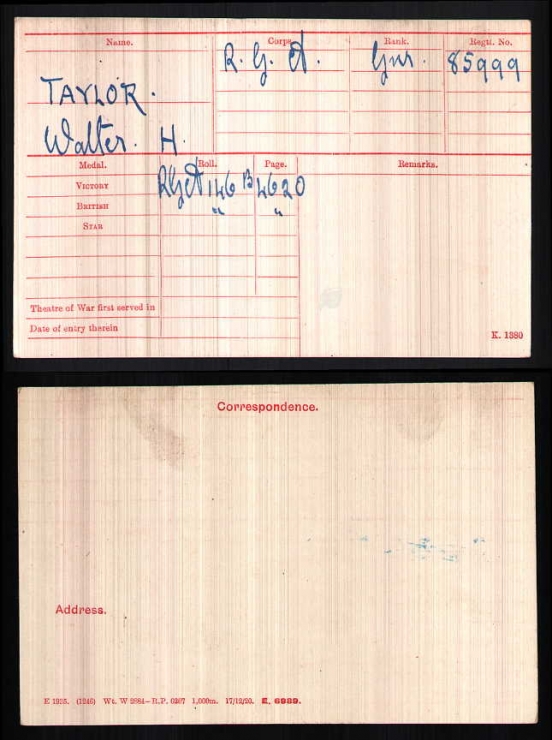 Name. Corps. Rank. Regtl. No.
R. G. A. Gnr. 85999
TAYLOR.
Walter. H.
Medal. Roll. Page. Remarks.
VICTORY RGA 146 B 4620
BRITISH " "
STAR
Theatre of War first served in
Date of entry therein
K. 1380
Correspondence.
Address.
E 1255. (1246) Wt. W 2984—R.P. 0367 1,000m. 17/12/20. E. 6989.